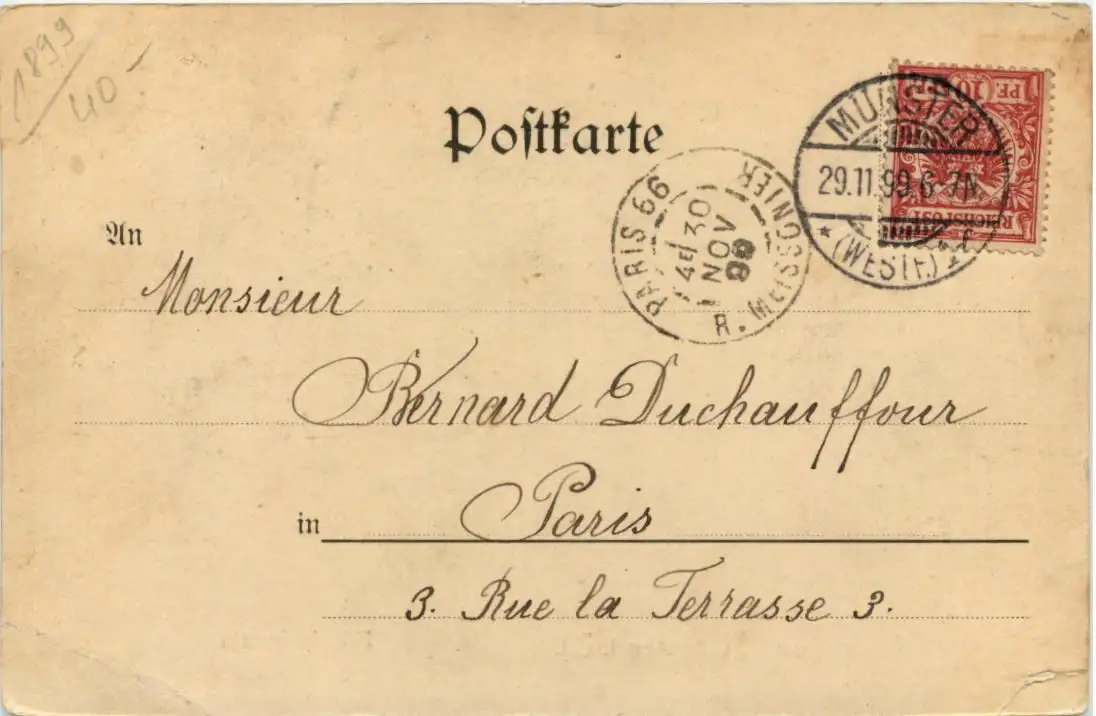 1899
40-
Postkarte
MÜNSTER
29.11.99.6-7N.
* (WESTF.)
10 PF.
REICHSPOST
PARIS 66
R. MEISSONIER
4E 30
NOV
99
An
Monsieur
Bernard Duchauffour
in Paris
3. Rue la Terrasse 3.